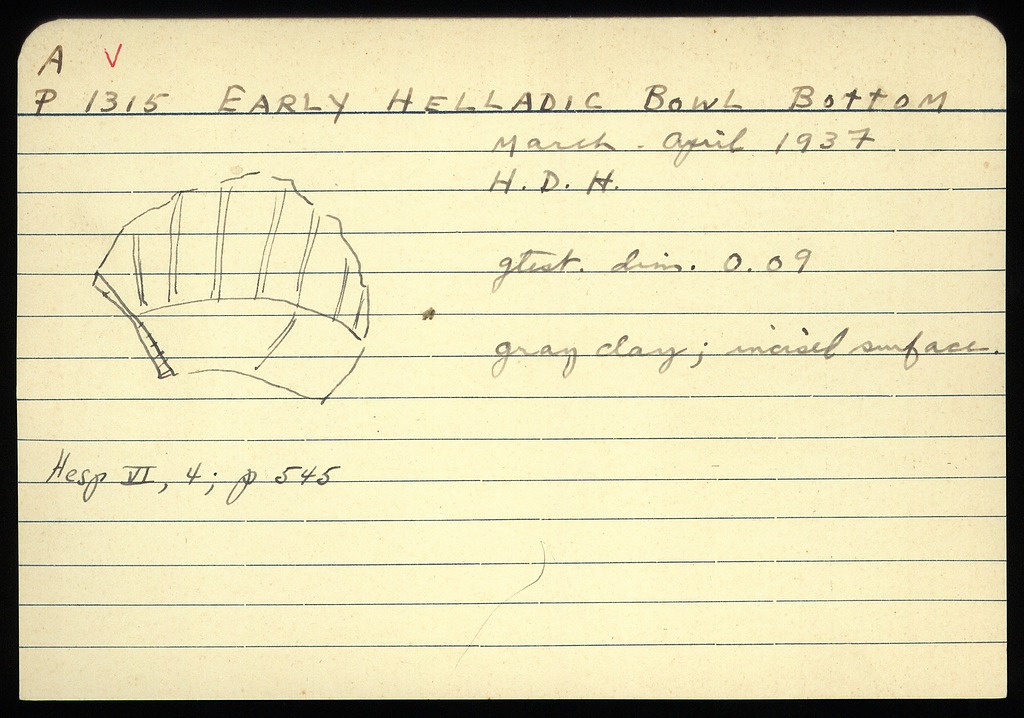 A V
P 1315 EARLY HELLADIC BOWL BOTTOM
March - April 1937
H. D. H.
gtest. dim. 0.09
gray clay; incised surface.
Hesp VI, 4; p 545